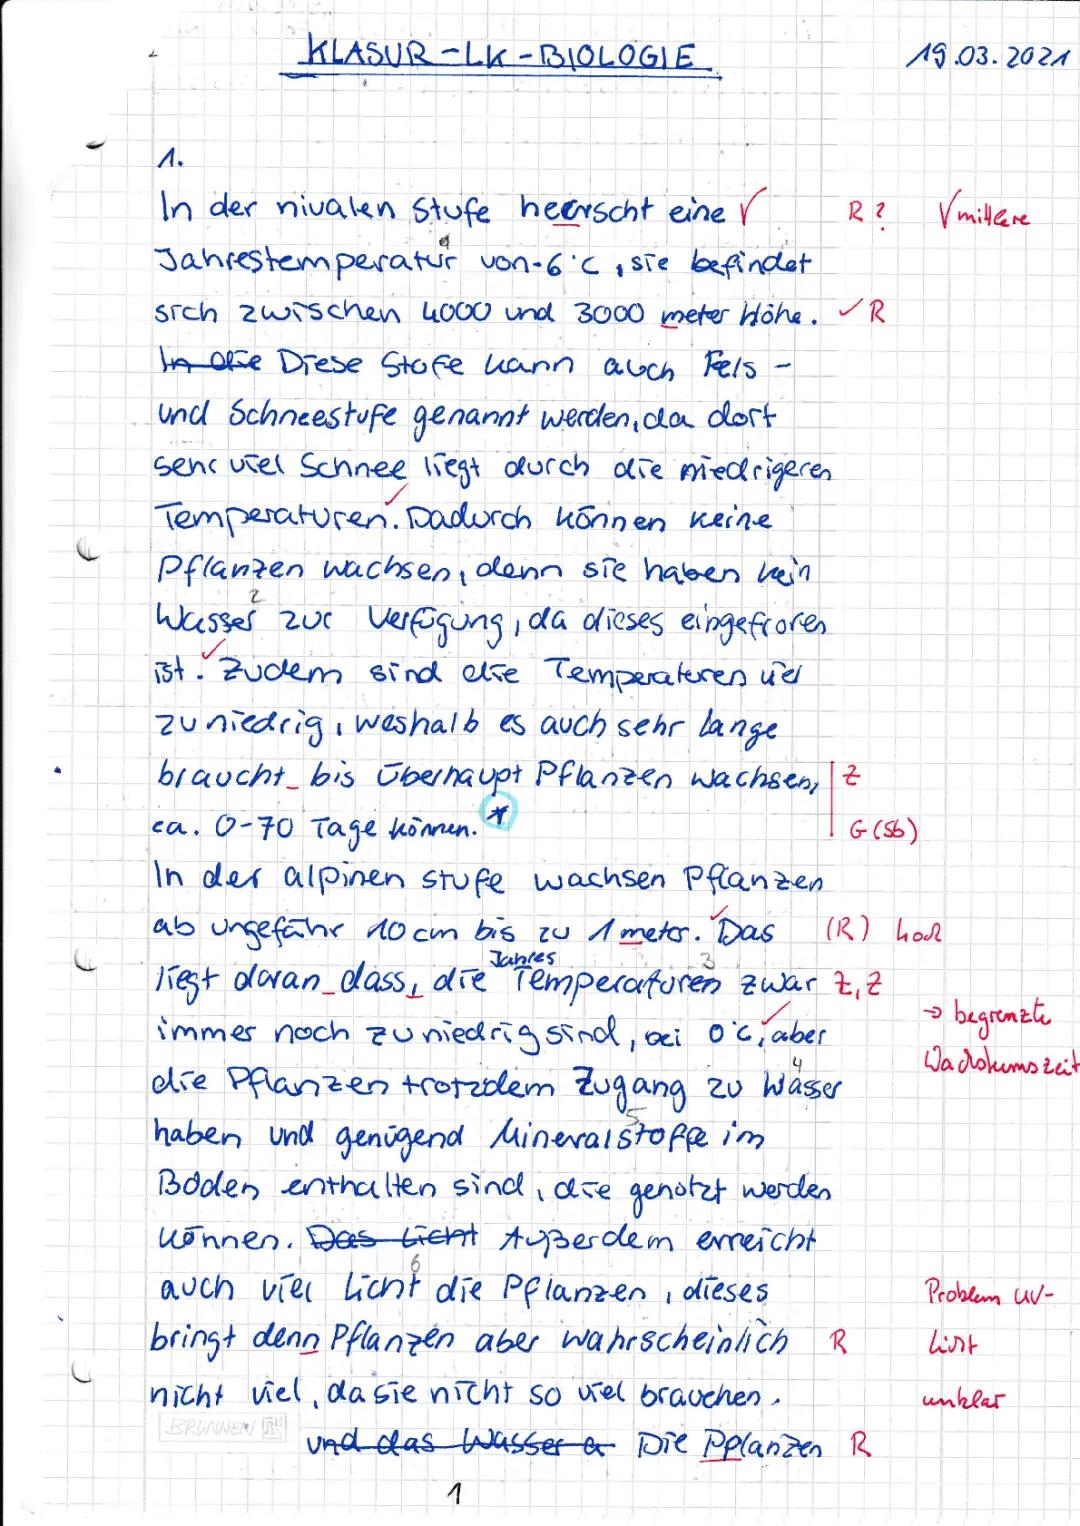 KLASUR-LK-BIOLOGIE 19.03.2021
1.
In der nivalen Stufe heerscht eine √ R? √ mittlere
Jahrestemperatur von -6°C, sie befindet
sich zwischen 4000 und 3000 meter Höhe. ✓ R
In die Diese Stufe kann auch Fels-
und Schneestufe genannt werden, da dort
sehr viel Schnee liegt durch die niedrigeren
Temperaturen. ✓ Dadurch können keine
Pflanzen wachsen, denn sie haben kein
Wasser 2 zur Verfügung, da dieses eingefroren
ist. ✓ Zudem sind die Temperaturen viel
zu niedrig, weshalb es auch sehr lange
braucht_bis überhaupt Pflanzen wachsen, Z
ca. 0-70 Tage können. * G (Sb)
In der alpinen stufe wachsen Pflanzen
ab ungefähr 10 cm bis zu 1 meter. ✓ Das (R) hoch
Jahres 3
liegt daran_dass, die Temperaturen zwar Z, Z
immer noch zu niedrig sind, bei 0°C, ✓ aber → begrenzte
die Pflanzen trotzdem Zugang zu Wasser 4 Wachstumszeit
haben und genügend Mineralstoffe 5 im
Boden enthalten sind, die genutzt werden
können. Das Licht Außerdem erreicht
auch viel Licht 6 die Pflanzen, dieses Problem UV-
bringt denn Pflanzen aber wahrscheinlich R Licht
nicht viel, da sie nicht so viel brauchen. unklar
BRUNNEN
und das Wasser Die Pplanzen R
1